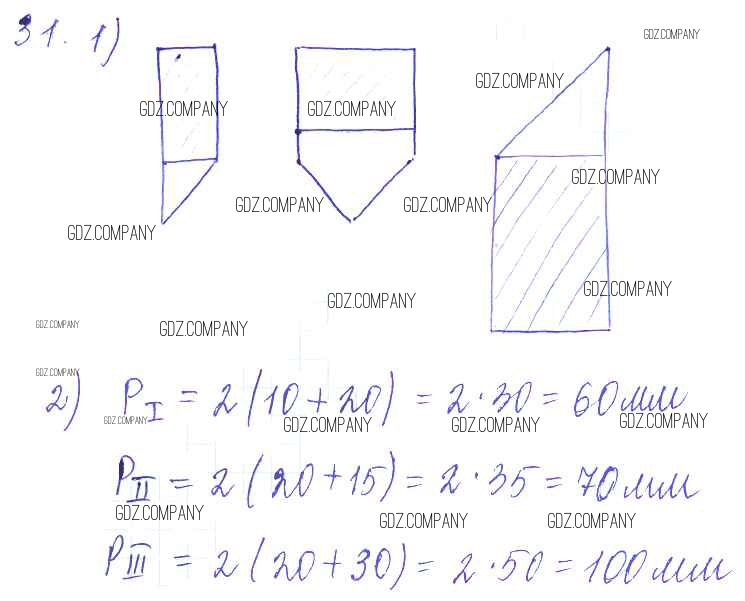 31. 1)
GDZ.COMPANY
GDZ.COMPANY
GDZ.COMPANY GDZ.COMPANY
GDZ.COMPANY
GDZ.COMPANY GDZ.COMPANY
GDZ.COMPANY
GDZ.COMPANY
GDZ.COMPANY
GDZ.COMPANY GDZ.COMPANY
GDZ.COMPANY
2) P_I = 2(10+20) = 2·30 = 60мм
GDZ.COMPANY GDZ.COMPANY GDZ.COMPANY GDZ.COMPANY
P_II = 2(20+15) = 2·35 = 70мм
GDZ.COMPANY GDZ.COMPANY GDZ.COMPANY
P_III = 2(20+30) = 2·50 = 100мм